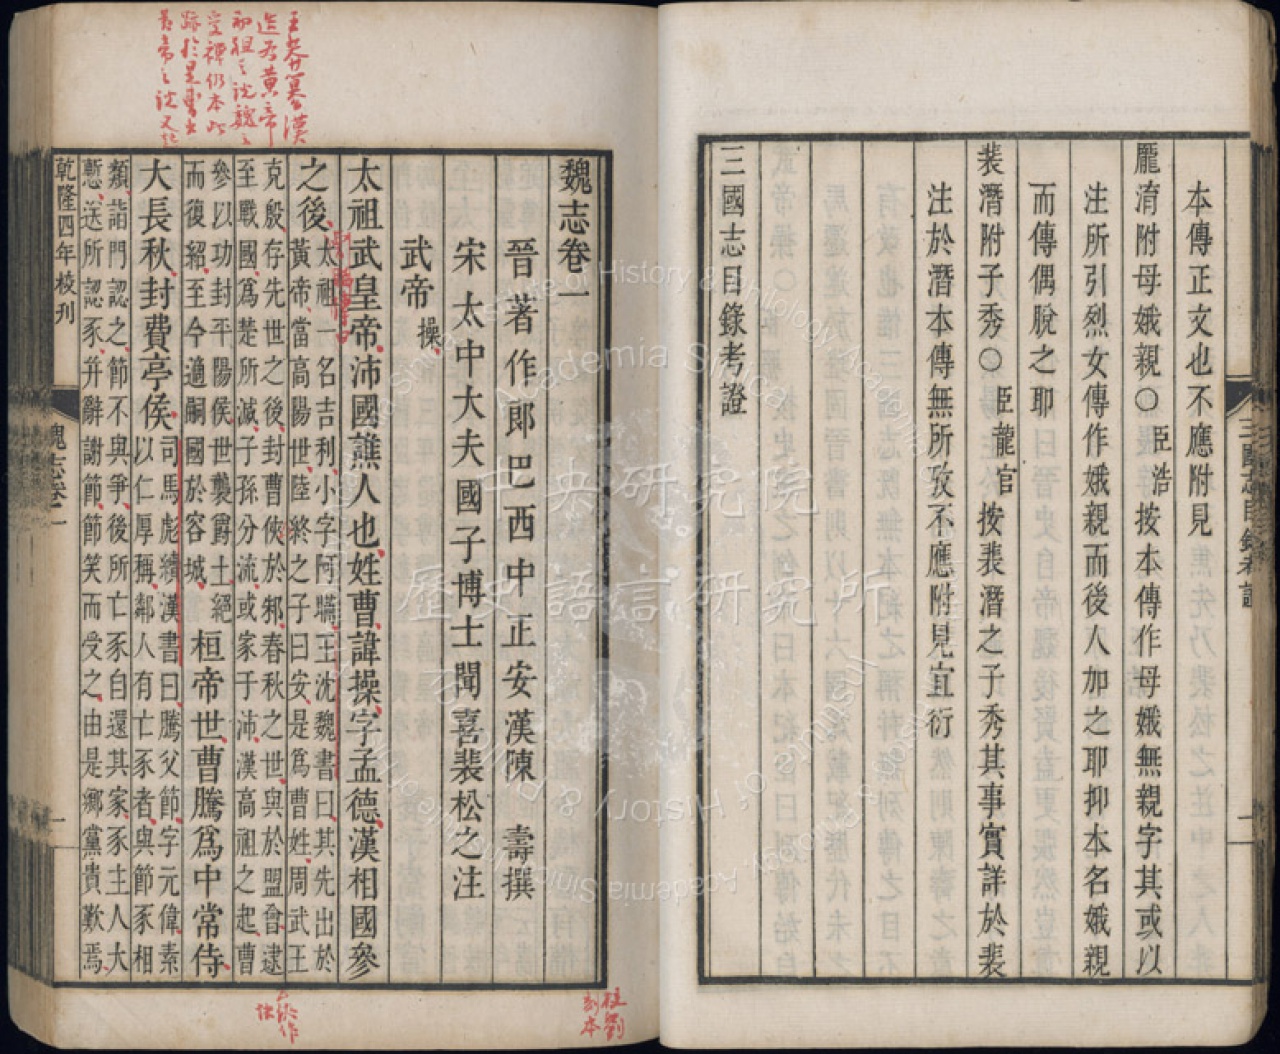 本傳正文也不應附見
龐淯附母娥親○臣浩按本傳作母娥無親字其或以
注所引烈女傳作娥親而後人加之耶抑本名娥親
而傳偶脫之耶
裴潛附子秀○臣龍官按裴潛之子秀其事實詳於裴
注於潛本傳無所攷不應附見宜衍
三國志目錄考證
魏志卷一
晉著作郎巴西中正安漢陳壽撰
宋太中大夫國子博士聞喜裴松之注
武帝操
太祖武皇帝沛國譙人也姓曹諱操字孟德漢相國參
之後
太祖一名吉利小字阿瞞王沈魏書曰其先出於
黃帝當高陽世陸終之子曰安是為曹姓周武王
克殷存先世之後封曹俠於邾春秋之世與於盟會逮
至戰國為楚所滅子孫分流或家于沛漢高祖之起曹
參以功封平陽侯世襲爵土絕
而復紹至今適嗣國於容城
桓帝世曹騰為中常侍
大長秋封費亭侯
司馬彪續漢書曰騰父節字元偉素
以仁厚稱鄰人有亡豕者與節豕相
類詣門認之節不與爭後所亡豕自還其家豕主人大
慙送所認豕并辭謝節節笑而受之由是鄉黨貴歎焉
乾隆四年校刊
魏志卷一
一
王莽篡漢
造為黃帝
初祖之說魏之
受禪仍本此
中央研究院
歷史語言研究所